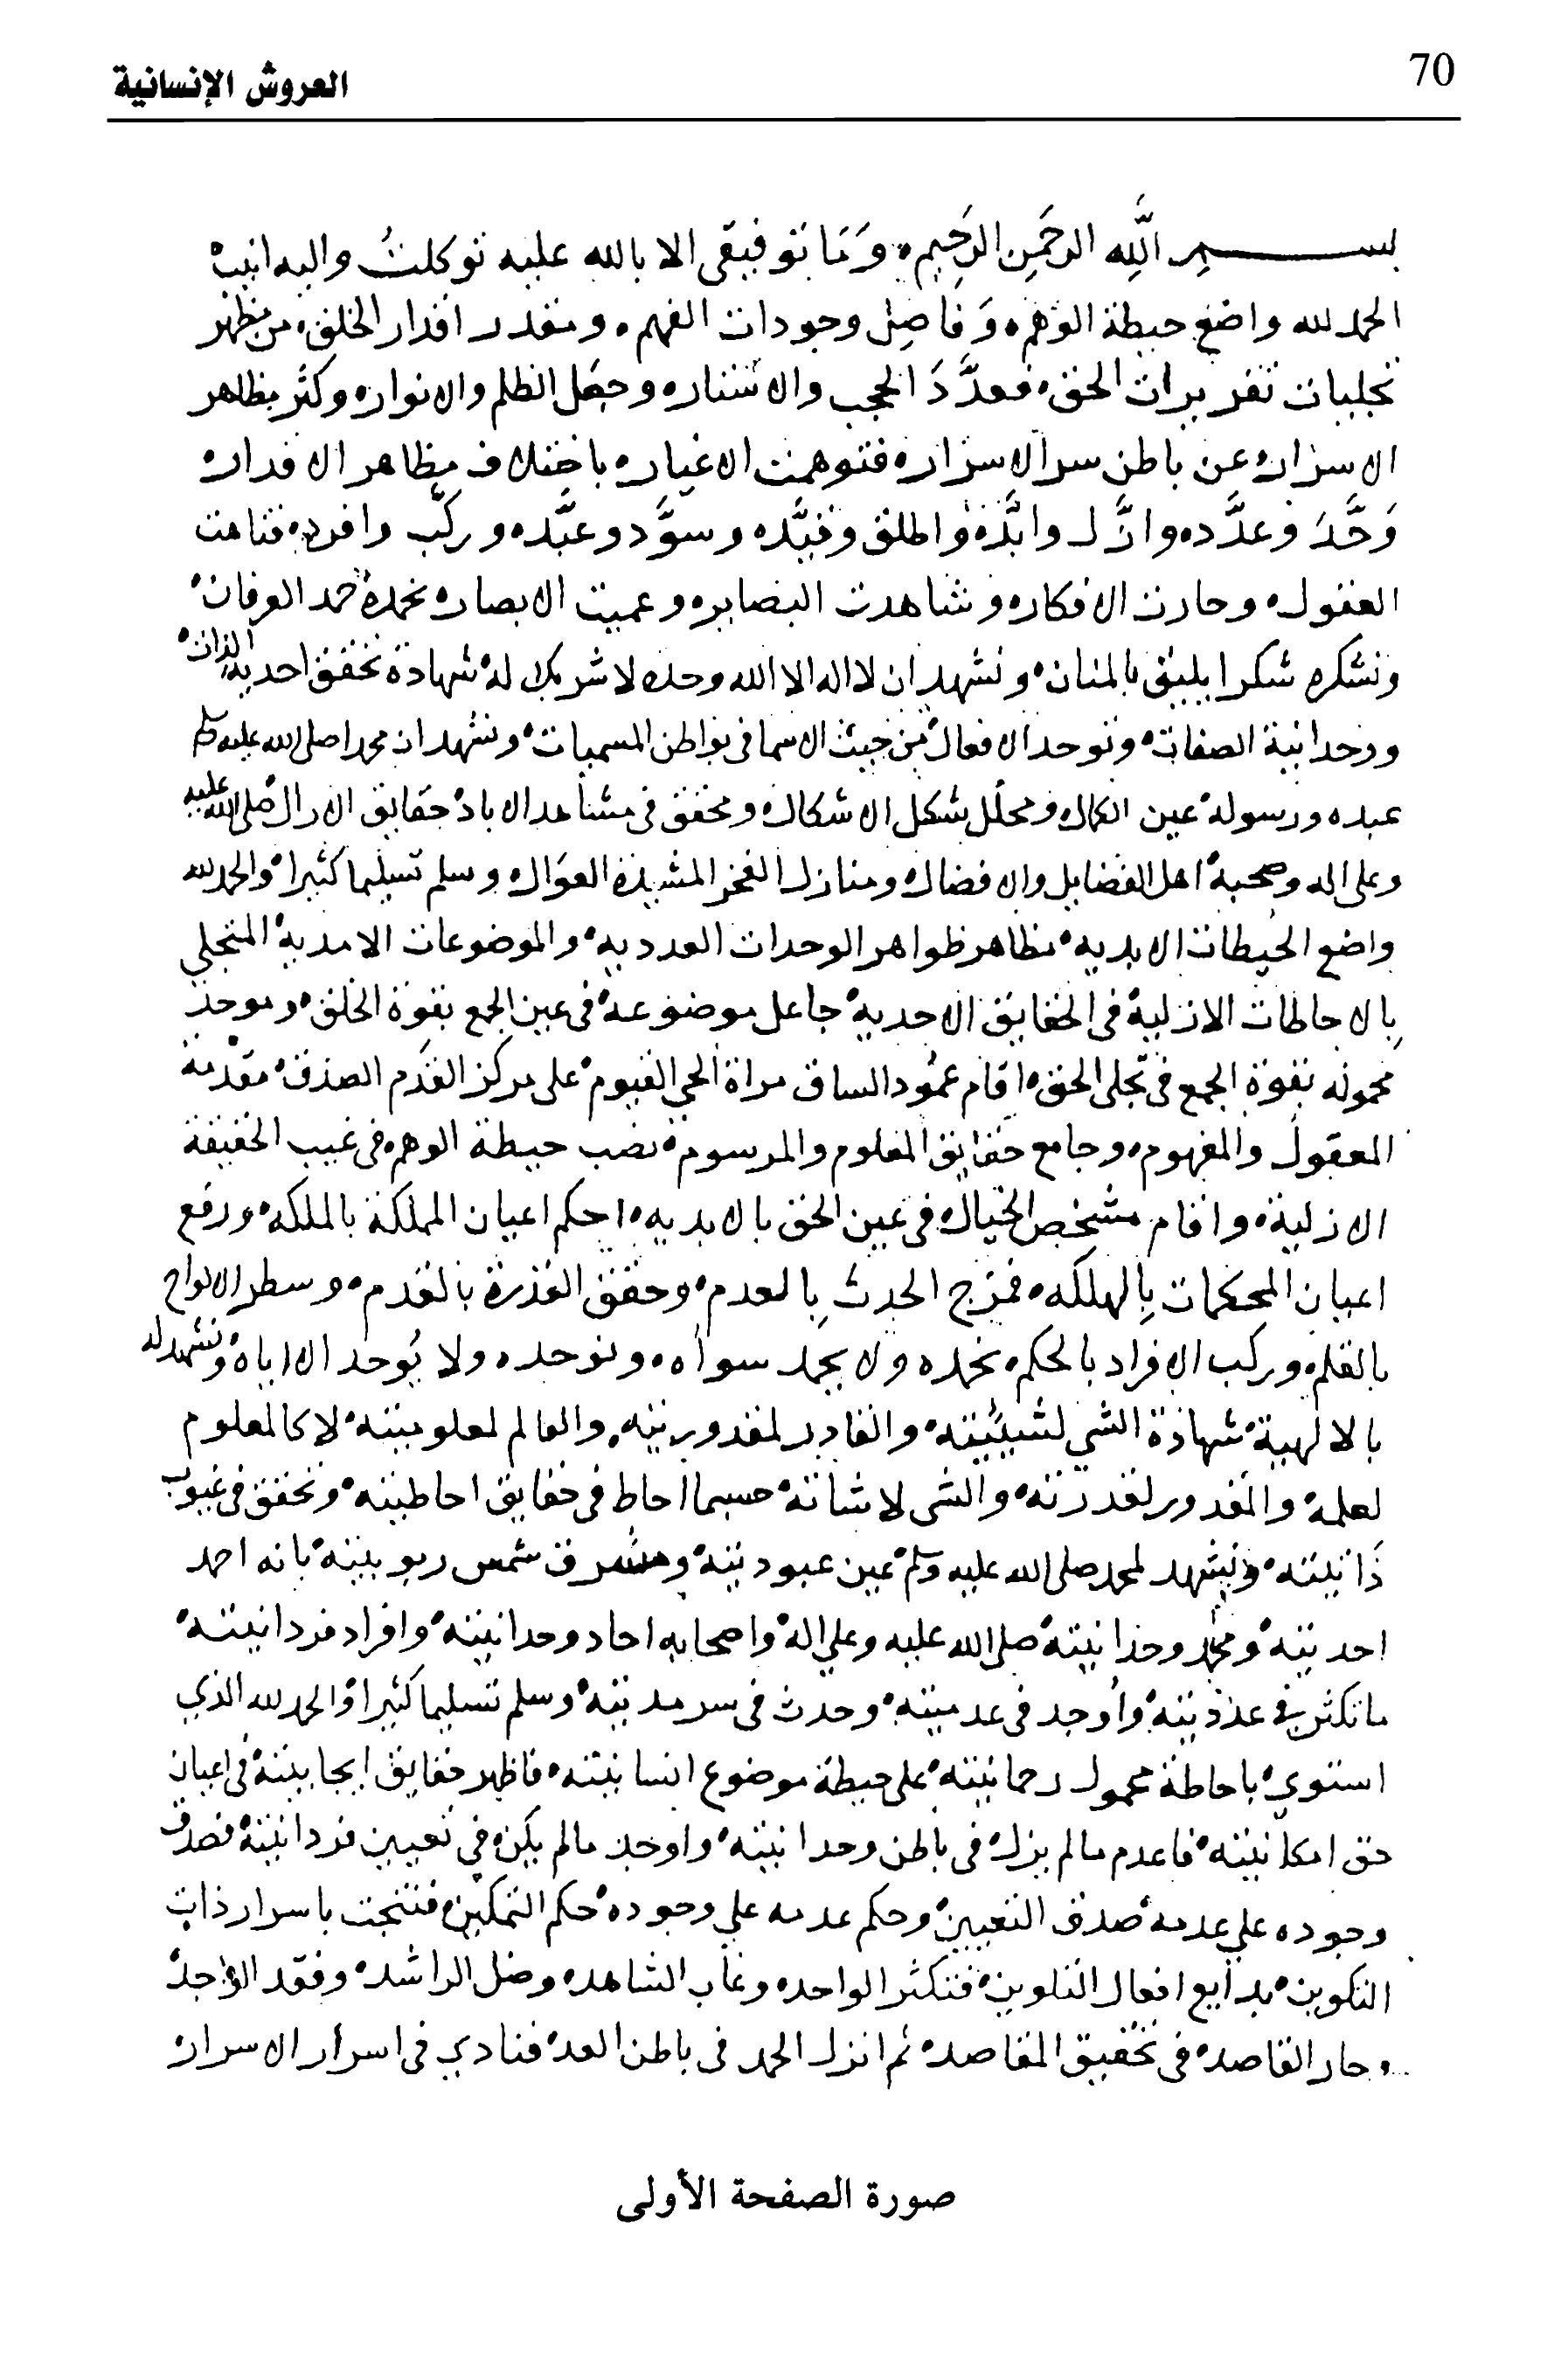 70
العروش الإنسانية
بسم الله الرحمن الرحيم وما توفيقى الا بالله عليه توكلت واليه انيب
الحمد لله واضع حيطة الوهم وفاصل وجودات الفهم ومقدر اقدار الخلق من مظهر
تجليات تقريرات الحق فعدد الحجب والاستتار وجعل الظلم والانوار وكثر مظاهر
الاسرار عن باطن سر الاسرار فتوهمت الاغيار باختلاف مظاهر الاقدار
وحد وعدد وازل وابد واطلق وقيد وسود وعبد وركب وافرد فتاهت
العقول وحارت الافكار وشاهدت البصاير وعميت الابصار نحمده حمد العرفان
ونشكره شكرا يليق بالمنان ونشهد ان لا اله الا الله وحده لا شريك له شهادة تحقق احدية الذات
ووحدانية الصفات وتوحد الافعال من حيث الاسما فى بواطن المسميات ونشهد ان محمدا صلى الله عليه وسلم
عبده ورسوله عين الكمال ومحلل شكل الاشكال ومحقق فى مشاهد الاباد حقايق الازال صلى الله عليه
وعلى اله وصحبه اهل الفضايل والافضال ومنازل الفخر المشيدة العوال وسلم تسليما كثيرا والحمد لله
واضع الحيطات الابديه مظاهر ظواهر الوحدات العدديه والموضوعات الامدية المتجلي
بالاحاطات الازلية فى الحقايق الاحدية جاعل موضوعه فى عين الجمع بقوة الخلق وموحد
محموله بقوة الجمع فى تجلى الحق اقام عمود الساق مراة الحي القيوم على مركز القدم الصدق مقدمة
المعقول والمفهوم وجامع حقايق المعلوم والمرسوم نصب حيطة الوهم فى غيب الحقيقة
الازلية واقام مشخص الخيال فى عين الحق بالابديه احكم اعيان المملكة بالملكه ورفع
اعيان المحكمات بالهلكه فمزج الحدث بالعدم وحقق القدرة بالقدم وسطر الالواح
بالقلم وركب الافراد بالحكم نحمده ولا يحمد سواه ونوحده ولا يوحد الا اياه ونشهد له
بالالهية شهادة الشي لشيئيته والقادر لمقدوريته والعالم لمعلوميته لا كالمعلوم
لعلمه والمقدور لقدرته والشى لاشاته حسبما احاط فى حقايق احاطيته وتحقق فى غيوب
ذاتيته ونشهد لمحمد صلى الله عليه وسلم عين عبوديته ومشرق شمس ربوبيته بانه احد
احديته ومحمد وحدانيته صلى الله عليه وعلي اله واصحابه احاد وحدانيته وافراد فردانيته
ما تكثر في عدديته وأوجد فى عدميته وحدث فى سرمديته وسلم تسليما كثيرا والحمد لله الذي
استوي باحاطة محمول رحمانيته على حيطة موضوع انسانيته فاظهر حقايق ايجابيته فى اعيان
حق امكانيته فاعدم ما لم يزل فى باطن وحدانيته واوجد ما لم يكن في تعيين فردانيته فصدق
وجوده علي عدمه صدق التعيين وحكم عدمه علي وجوده حكم التمكين فنتجت باسرار ذات
التكوين بدايع افعال التلوين فتكثر الواحد وغاب الشاهد وضل الراشد وفقد الواجد
وحار القاصد فى تحقيق المقاصد ثم انزل الحمد فى باطن العد فنادي فى اسرار الاسرار
صورة الصفحة الأولى